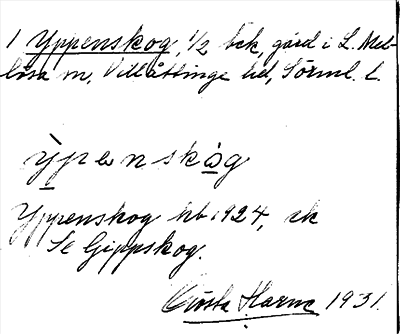 1 Yppenskog, 1/2 bck, gård i L. Mel-
lösa sn, Villåttinge hd, Sörml. l.
ỳpenskòg
Yppenskog hb 1924, ek
Se Gippskog.
Gösta Harne 1931.